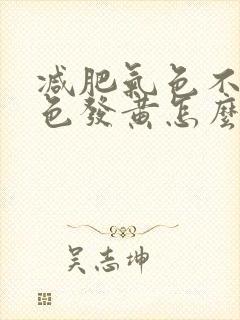 减肥氣色不
色發黄怎麼
吴志坤